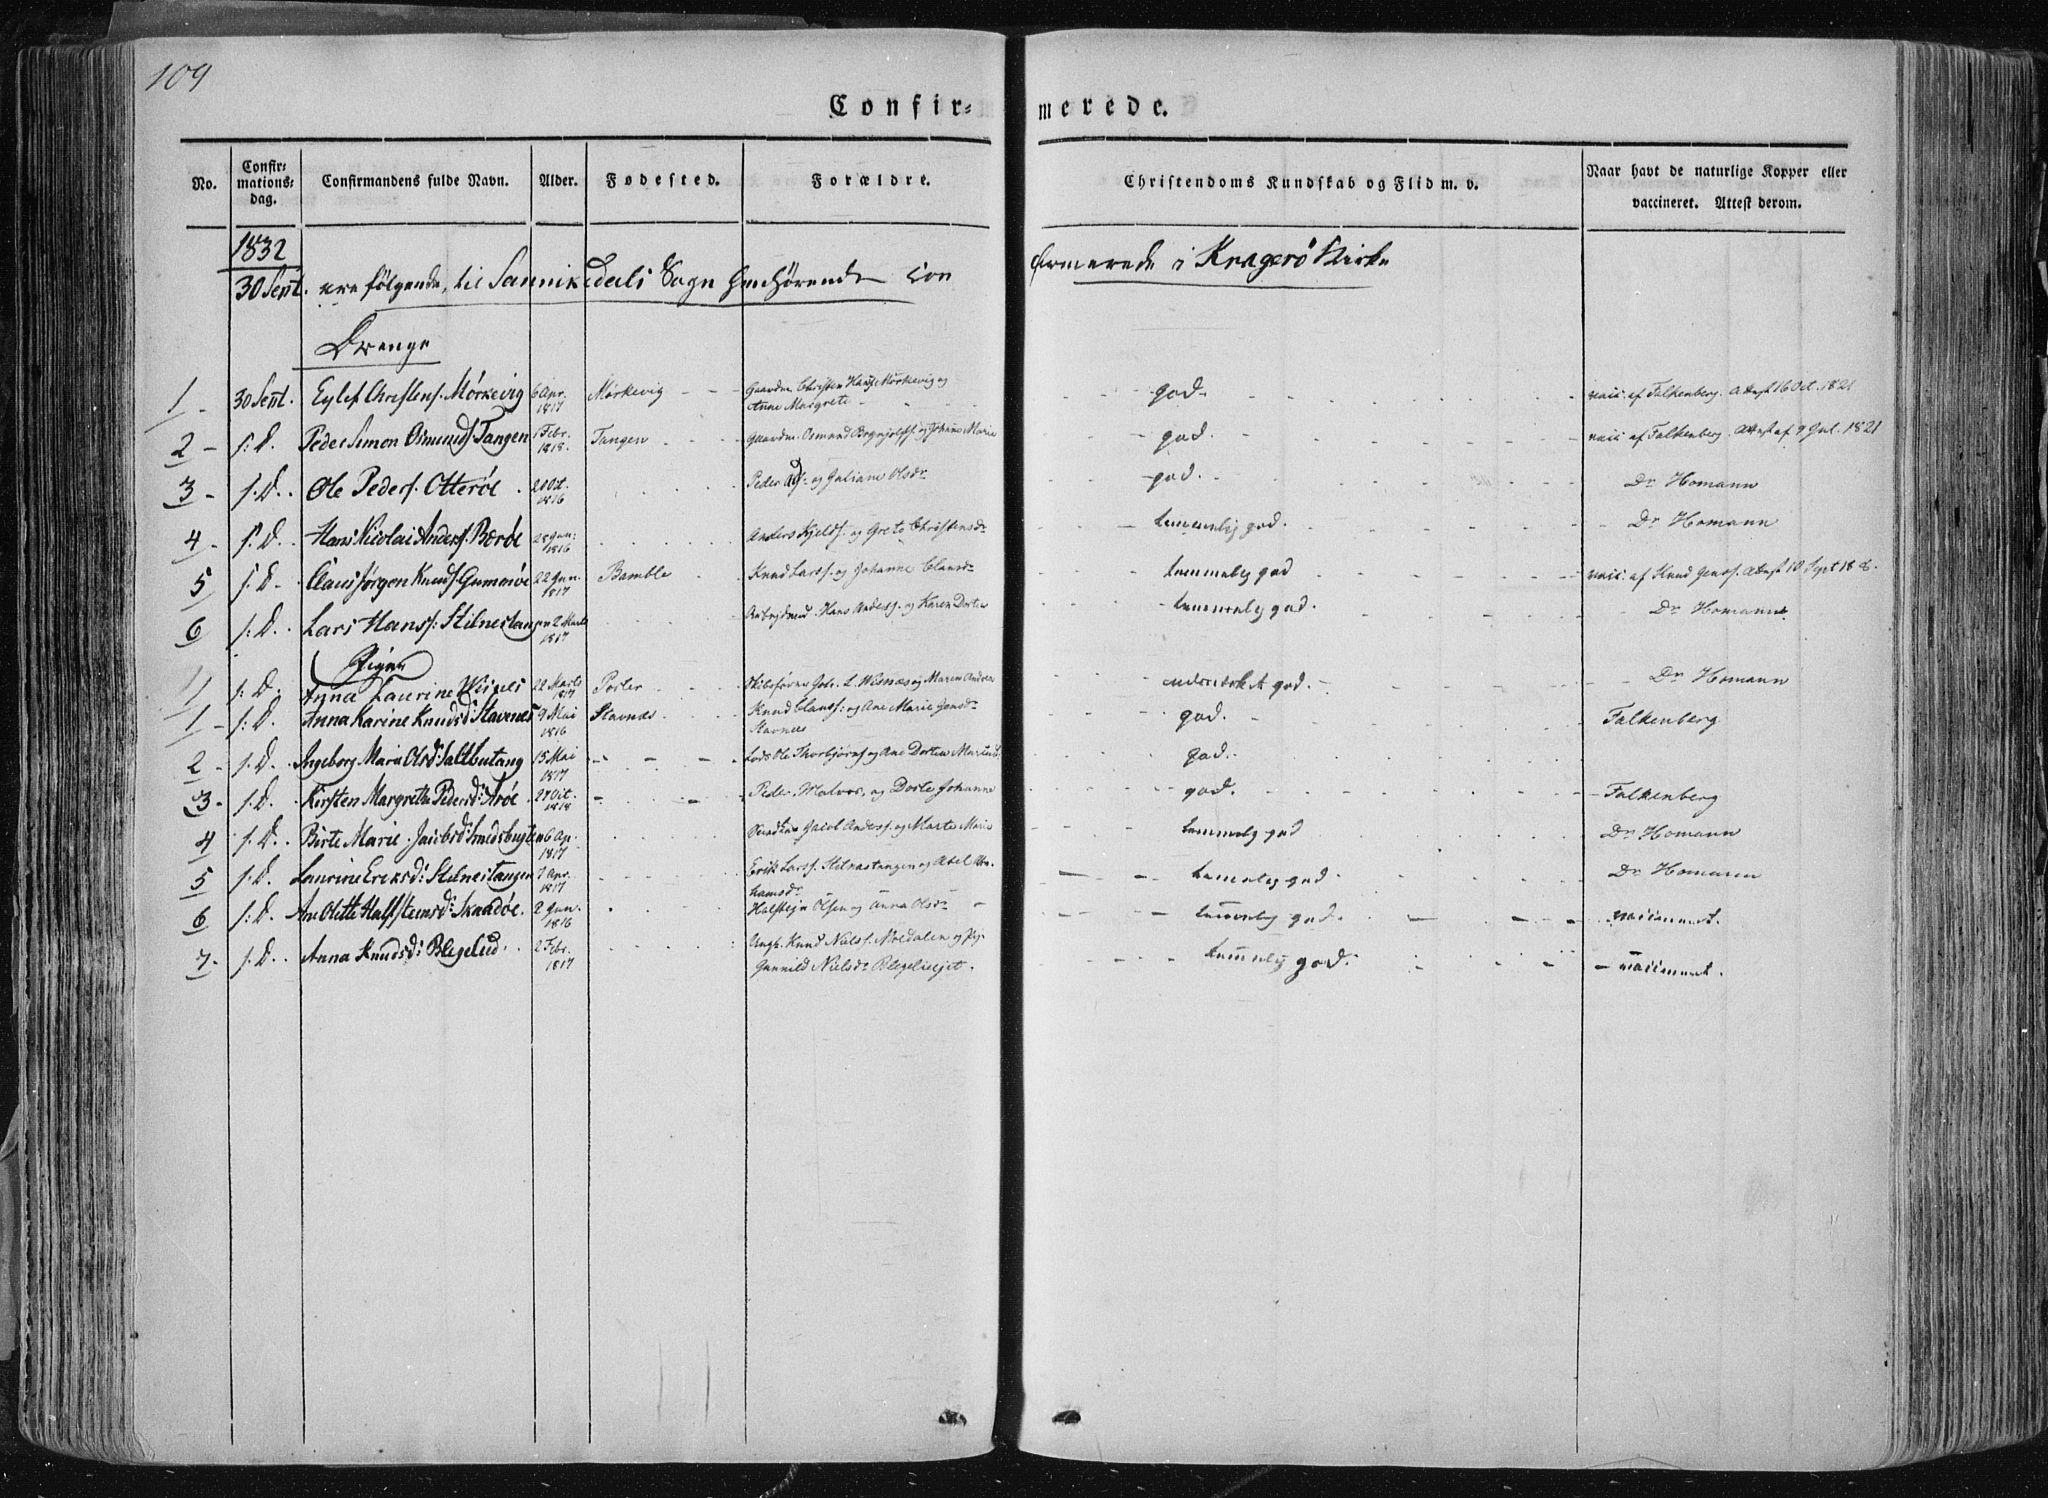 109
Confir-merede.
No.
Confir-
mations-
dag.
Confirmandens fulde Navn.
Alder.
Fødested.
Forældre.
Christendoms Kundskab og Flid m. v.
Naar havt de naturlige Kopper eller
vaccineret. Attest derom.
1832
30 Sept. ere følgende, til Sannikedals Sogn henhørende con firmerede i Kragerö Kirke
Drenge
1 - 30 Sept. Eylef Christens. Mörkevig 6 Apr. 1817 Mörkevig - - Gaardm. Christen Hans. Mörkevig og Anne Margrete - god. vacc. af Falkenberg. Attest 16 Oct. 1821
2 - s: D. Peder Simon Osmunds. Tangen 1 Febr. 1818. Tangen - - Gaardm. Osmund Brynjolfs. og Johanne Marie god. vacc. af Falkenberg. Attest af 9 Jul. 1821
3 - s. D. Ole Peders. Otteröe 20 Oct. 1816 Peder Ols. og Juliane Olsdr god. Dr Homann
4 - s: D. Hans Nicolai Anders. Beröe 28 Jan: 1816 Anders Kjelds. og Grete Christensdr temmelig god. Dr Homann
5 s: D. Claus Jörgen Knuds. Gumöe 22 Jan. 1817 Bamble Knud Larss. og Johanne Clausdr temmelig god vacc. af Knud Jenss. Attest 10 Sept 18
6 s: D. Lars Hans: Stilnestangen 2 Marts 1817 Arbejdsmd. Hans Anders. og Karen Dortea temmelig god. Dr Homann
Piger
1 s: D. Anna Laurine Wisnes 22 Marts 1817 Porter Skibsförer Joh. L. Wisnæs og Maren Andrea udmærket god. Dr Homann
1 - s: D. Anna Karine Knudsd: Stavnes 9 Mai 1816 Stavnæs Knud Clauss: og Ane Marie Jensdr Stavnæs god. Falkenberg
2 - s: D. Ingeborg Maria Olsd: Saltbutang 15 Mai 1817 Lods Ole Thorbjørns og Ane Dortea god.
3 - s: D. Kirsten Margrethe Pedersd: Aröe 27 Oct. 1818 Peder og Dorte Johanne god. Falkenberg
4 s: D. Birte Marie Jacobsd: Smedsbugten 6 Ap. 1817 Jacob Anders. og Marte Marie temmelig god Dr Homann
5 s: D. Laurine Eriksd: Stilnestangen 7 Apr. 1817 Erik Larss. Stilnestangen og Abel Abra hamsdr temmelig god Dr Homann
6 s: D. Ane Olette Halfstensd: Skaadöe 2 Jan. 1816 Halstejn Olsen og Anna Olsdr temmelig god. vaccineret.
7 - s: D. Anna Knudsd: Blegelud 2 Febr. 1817 Ungk. Knud Niels. Moedalen og Pg. Gunnild Nielsdr Blegeliejet. temmelig god. vaccineret.